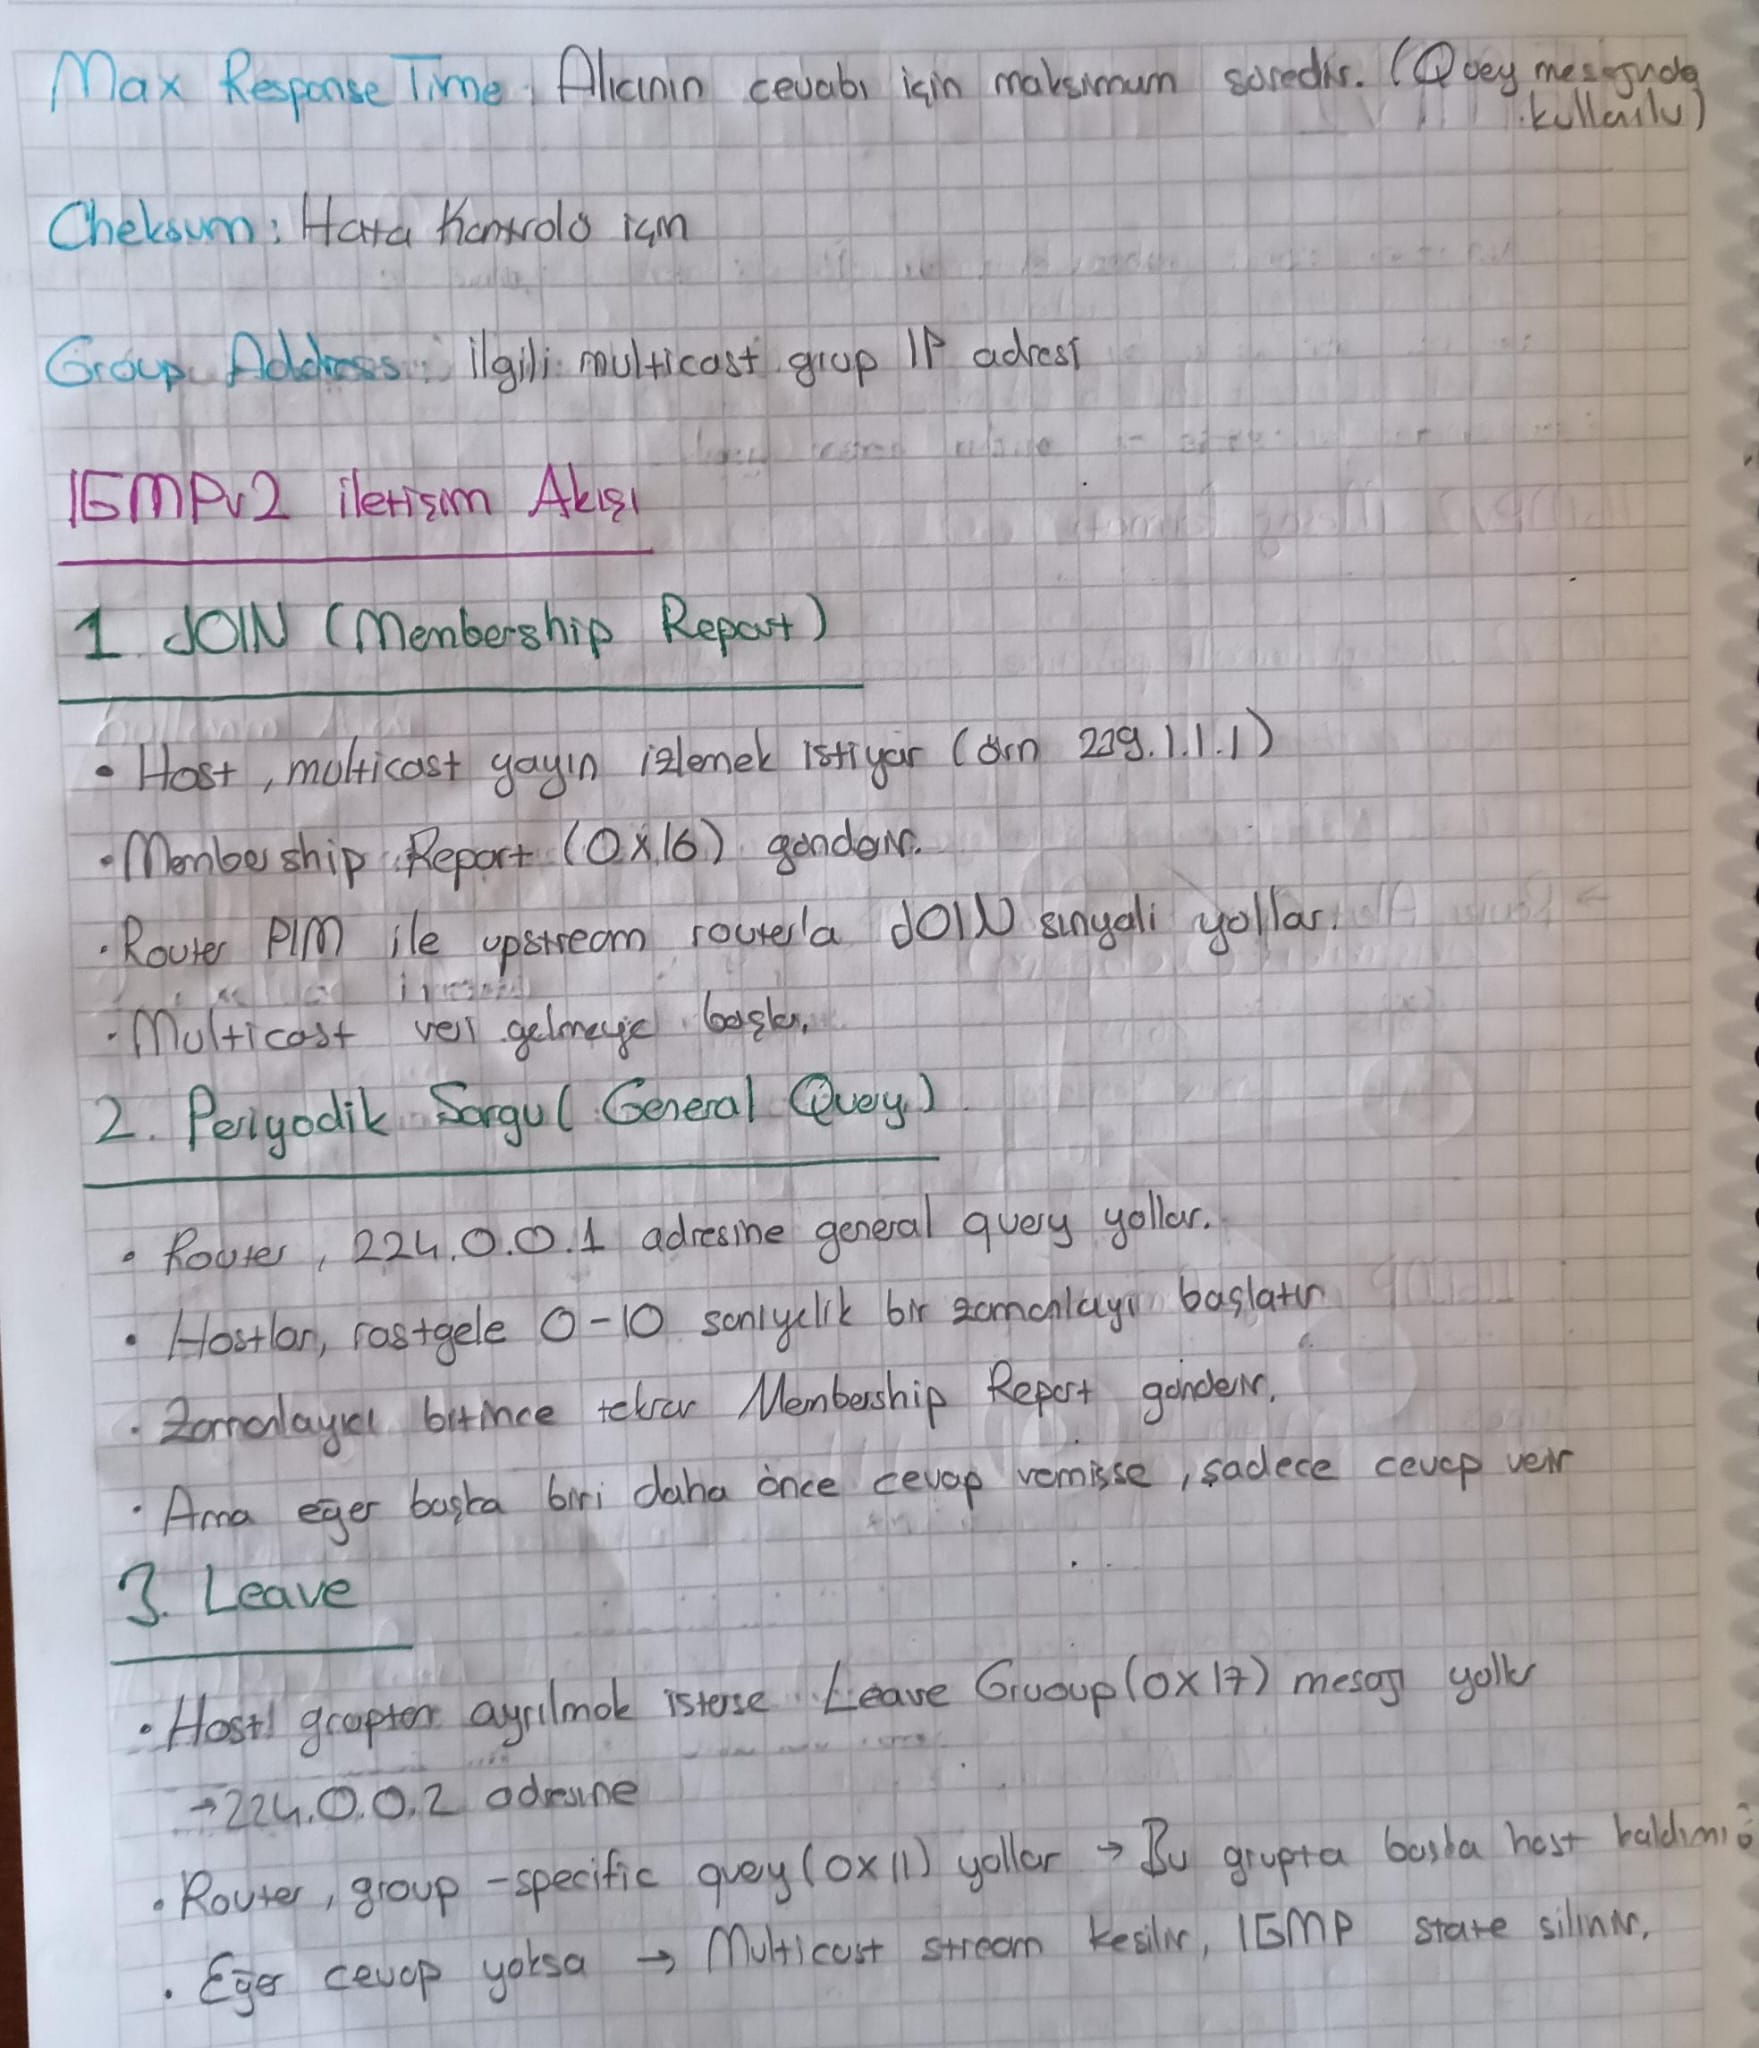 Max Response Time: Alıcının cevabı için maksimum süredir. (Query mesajında
kullanılır)
Cheksum: Hata Kontrolü için
Group Address: ilgili multicast grup IP adresi
IGMPv2 iletişim Akışı
1. JOIN (Membership Report)
• Host, multicast yayın izlemek istiyor (örn 239.1.1.1)
• Membership Report (0x16) gönderir.
• Router PIM ile upstream router'a JOIN sinyali yollar.
• Multicast veri gelmeye başlar.
2. Periyodik Sorgu (General Query)
• Router, 224.0.0.1 adresine general query yollar.
• Hostlar, rastgele 0-10 saniyelik bir zamanlayıcı başlatır
• Zamanlayıcı bitince tekrar Membership Report gönderir.
• Ama eğer başka biri daha önce cevap vermişse, sadece cevap verir
3. Leave
• Host gruptan ayrılmak isterse Leave Gruoup (0x17) mesajı yollar
→ 224.0.0.2 adresine
• Router, group-specific query (0x11) yollar → Bu grupta başka host kaldı mı?
• Eğer cevap yoksa → Multicast stream kesilir, IGMP state silinir.